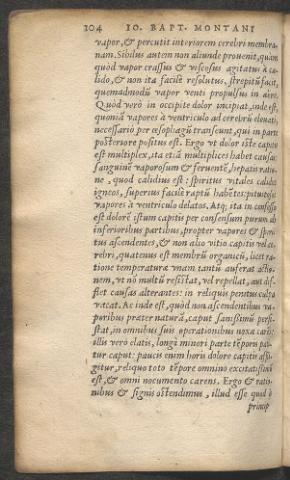 104 IO. BAPT. MONTANI
vapor, & percutit interiorem cerebri membra-
nam. Sibilus autem non aliunde prouenit, quàm
quòd vapor crassus & viscosus agitatus à ca-
lido, & non ita facilè resolutus, strepitū facit,
quemadmodū vapor venti propulsus in aëre.
Quòd verò in occipite dolor incipiat, inde est,
quoniā vapores à ventriculo ad cerebrū eleuati,
necessariò per œsophagū transeunt, qui in parte
posteriore positus est. Ergo vt dolor iste capitis
est multiplex, ita etiā multiplices habet causas:
sanguinē vaporosum & feruentē, hepatis ratio-
ne, quod calidius est: spiritus vt tales calidos
igneos, superius facilè raptū habētes: pituitosos
vapores à ventriculo delatos. Atq; ita in confesso
est dolorē istum capitis per consensum purum ab
inferioribus partibus, propter vapores & spiri-
tus ascendentes, & non alio vitio capitis vel ce-
rebri, quatenus est membrū organicū, licet ra-
tione temperatura vnam tantū auferat actio-
nem, vt nō multū resistat, vel repellat, aut dis-
siet causas alterantes: in reliquis penitus culpa
vacat. Ac inde est, quòd non ascendentibus va-
poribus præter naturā, caput sanissimū persi-
stat, in omnibus suis operationibus noxa carēs:
illis verò elatis, longè minori parte tēporis pa-
tur caput: paucis enim horis dolore capitis affli-
gitur, reliquo toto tēpore omnino excitatissimū
est, & omni nocumento carens. Ergo & ratio-
nibus & signis ostendimus, illud esse quod à
princip